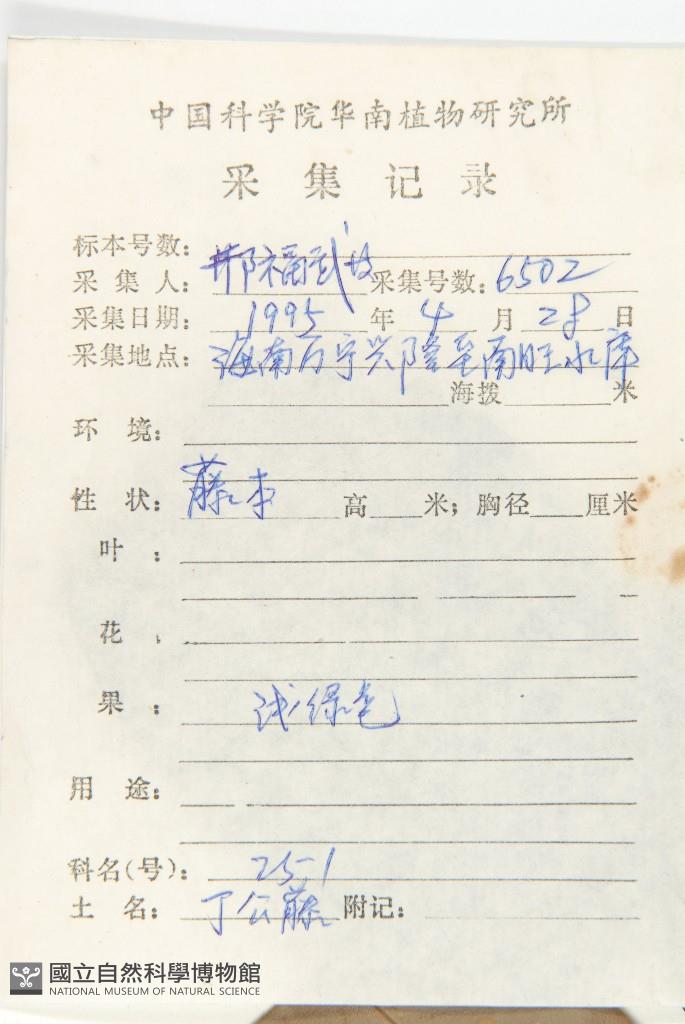 中国科学院华南植物研究所
采集记录
标本号数:
采集人: 邢福武 采集号数: 6502
采集日期: 1995 年 4 月 28 日
采集地点: 海南万宁兴隆至南旺水库
海拨 米
环境:
性状: 藤本 高 米; 胸径 厘米
叶:
花:
果: 浅绿色
用途:
科名(号): 251
土名: 丁公藤 附记:
國立自然科學博物館
NATIONAL MUSEUM OF NATURAL SCIENCE